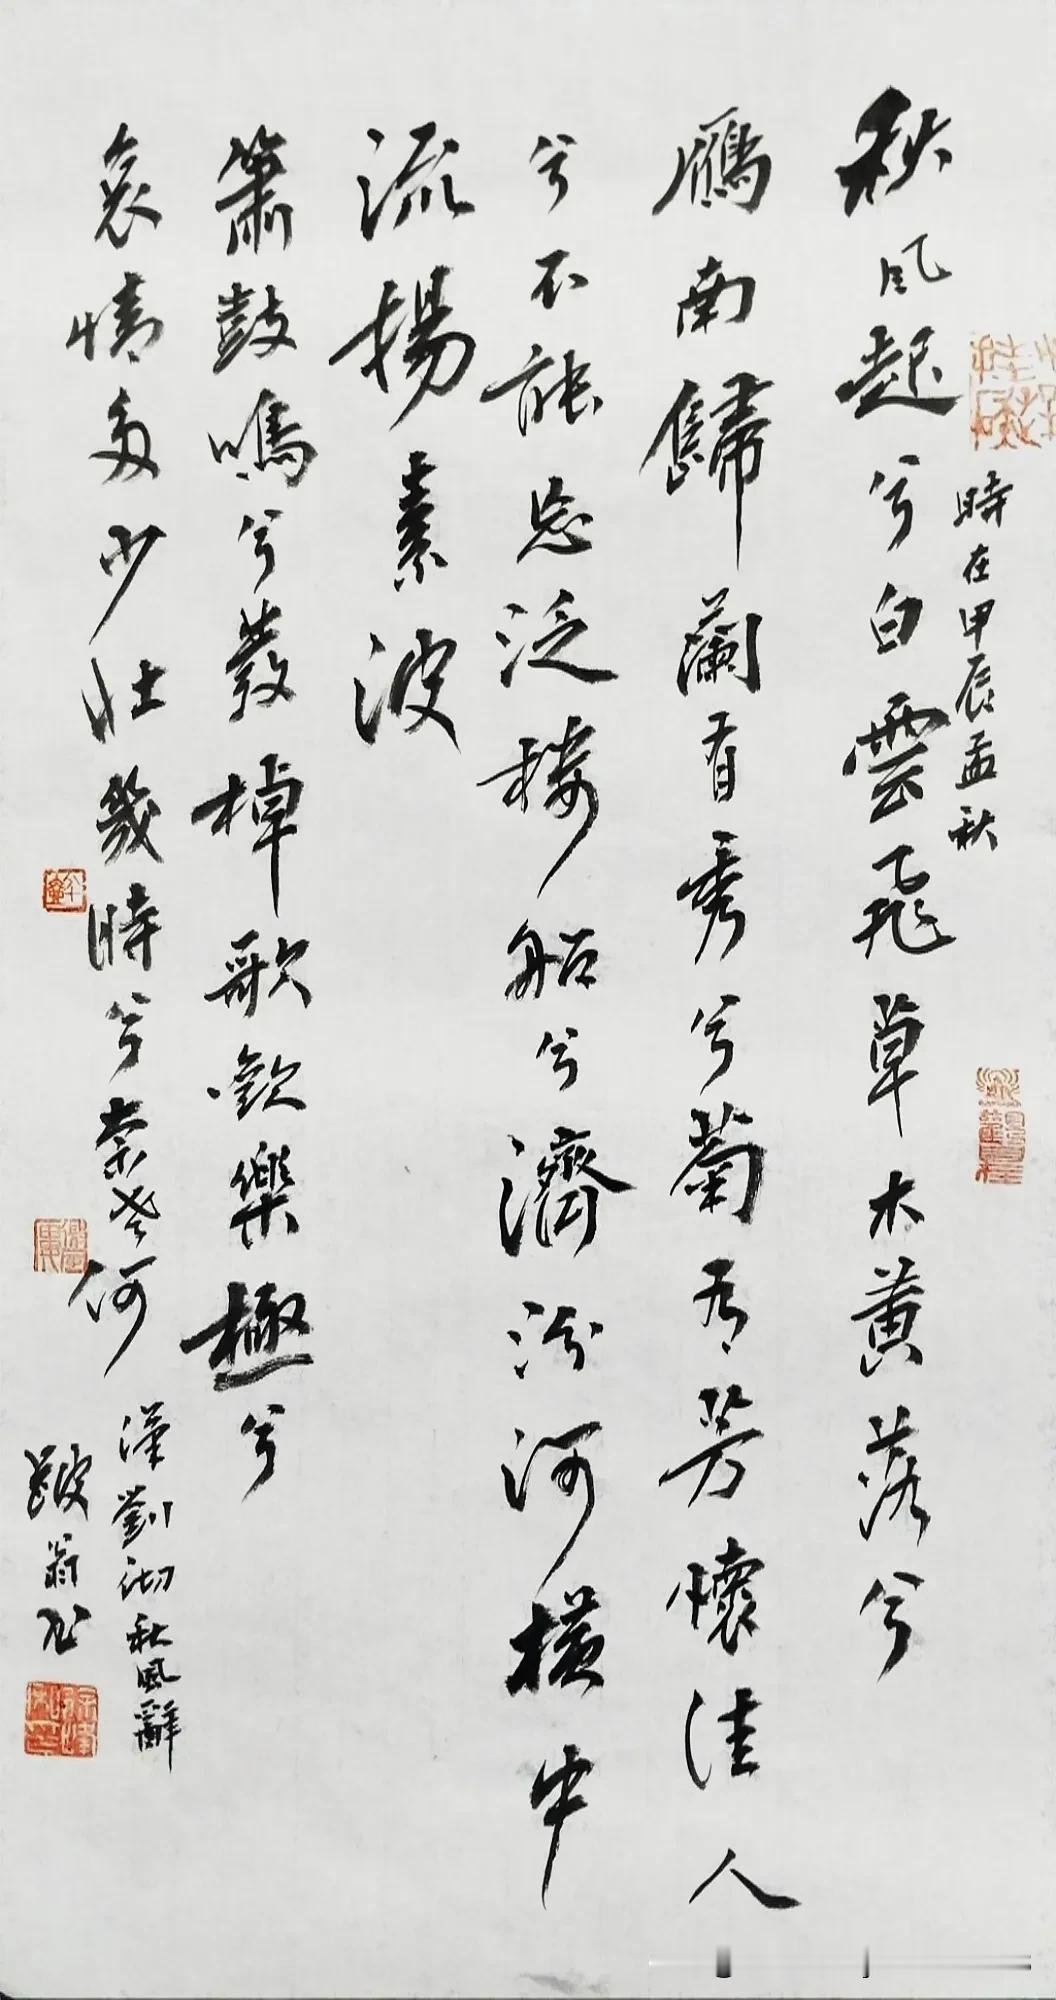 時在甲辰孟秋
秋風起兮白雲飛草木黄落兮
鴈南歸蘭有秀兮菊有芳懷佳人
兮不能忘泛樓船兮濟汾河橫中
流揚素波
簫鼓鳴兮發棹歌歡樂極兮
哀情多少壯幾時兮柰老何
漢劉彻秋風辭
翁书